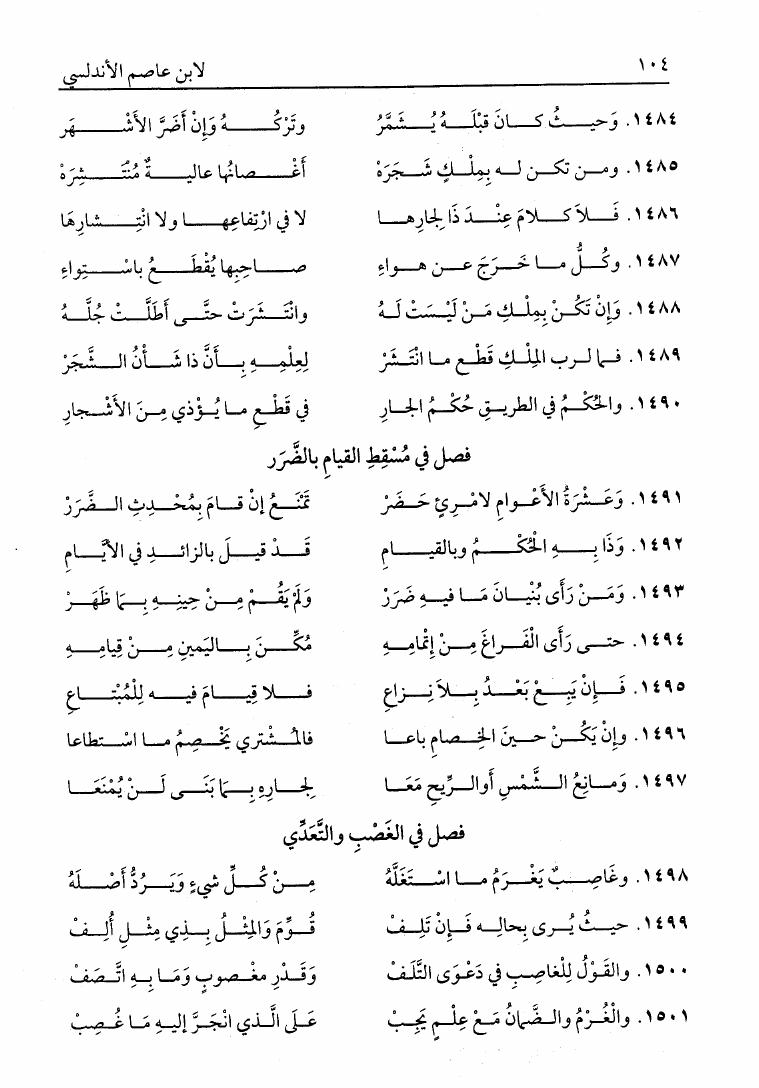 ١٠٤ لابن عاصم الأندلسي
١٤٨٤. وَحيثُ كانَ قبْلَهُ يُشَمَّرُ وتَرْكُهُ وَإنْ أضَرَّ الأشْهَر
١٤٨٥. ومن تكن له بِمِلْكٍ شَجَرَهْ أغْصانُها عاليةٌ مُنْتَشِرَهْ
١٤٨٦. فَلاَ كلامَ عِنْدَ ذَا لِجارِها لا في ارْتِفاعِها ولا انْتِشارِهَا
١٤٨٧. وكُلُّ ما خَرَجَ عن هواءِ صاحِبِها يُقْطَعُ باسْتِواءِ
١٤٨٨. وَإنْ تَكُنْ بِمِلكِ مَنْ لَيسَتْ لَهُ وانْتَشَرَتْ حتَّى أظَلَّتْ جُلَّهُ
١٤٨٩. فما لرب المِلْكِ قَطْع ما انْتَشَرْ لِعِلْمِهِ بأنَّ ذا شَأْنُ الشَّجَرْ
١٤٩٠. والحُكْمُ في الطريقِ حُكْمُ الجارِ في قَطْعِ ما يُؤْذي مِنَ الأشْجارِ
فصل في مُسْقِطِ القيامِ بالضَّرَر
١٤٩١. وَعَشْرَةُ الأعْوامِ لامْرِئٍ حَضَرْ تَمْنَعُ إنْ قامَ بِمُحْدِثِ الضَّرَرْ
١٤٩٢. وَذَا بِهِ الحُكْمُ وبالقيامِ قَدْ قيلَ بالزائدِ في الأيَّامِ
١٤٩٣. وَمَنْ رَأى بُنْيانَ مَا فيهِ ضَرَرْ وَلَمْ يَقُمْ مِنْ حينِهِ بِمَا ظَهَرْ
١٤٩٤. حتى رَأى الْفَراغَ مِنْ إتْمامِهِ مُكِّنَ باليَمينِ مِنْ قِيامِهِ
١٤٩٥. فَإنْ يَبِعْ بَعْدُ بِلاَ نِزاعِ فلا قِيامَ فيه لِلْمُبْتاعِ
١٤٩٦. وإنْ يَكُنْ حينَ الخِصامِ باعا فالمُشْتري يَخْصِمُ ما اسْتطاعا
١٤٩٧. وَمانِعُ الشَّمْسِ أوالرِّيحِ مَعَا لِجارِهِ بِمَا بَنَى لَنْ يُمْنَعَا
فصل في الغَصْبِ والتَّعَدِّي
١٤٩٨. وغَاصِبٌ يَغْرَمُ ما اسْتَغَلَّهُ مِنْ كُلِّ شيءٍ وَيَرُدُّ أصْلَهُ
١٤٩٩. حيثُ يُرى بِحالِهِ فَإنْ تَلِفْ قُوِّمَ وَالمِثْلُ بِذي مِثْلٍ أُلِفْ
١٥٠٠. والقَوْلُ لِلْغاصِبِ في دَعْوَى التَّلَفْ وَقَدْرِ مغصوبٍ وَمَا بِهِ اتَّصَفْ
١٥٠١. والْغُرْمُ والضَّمانُ مَعْ عِلْمٍ يَجِبْ عَلَى الَّذي انْجَرَّ إليهِ مَا غُصِبْ